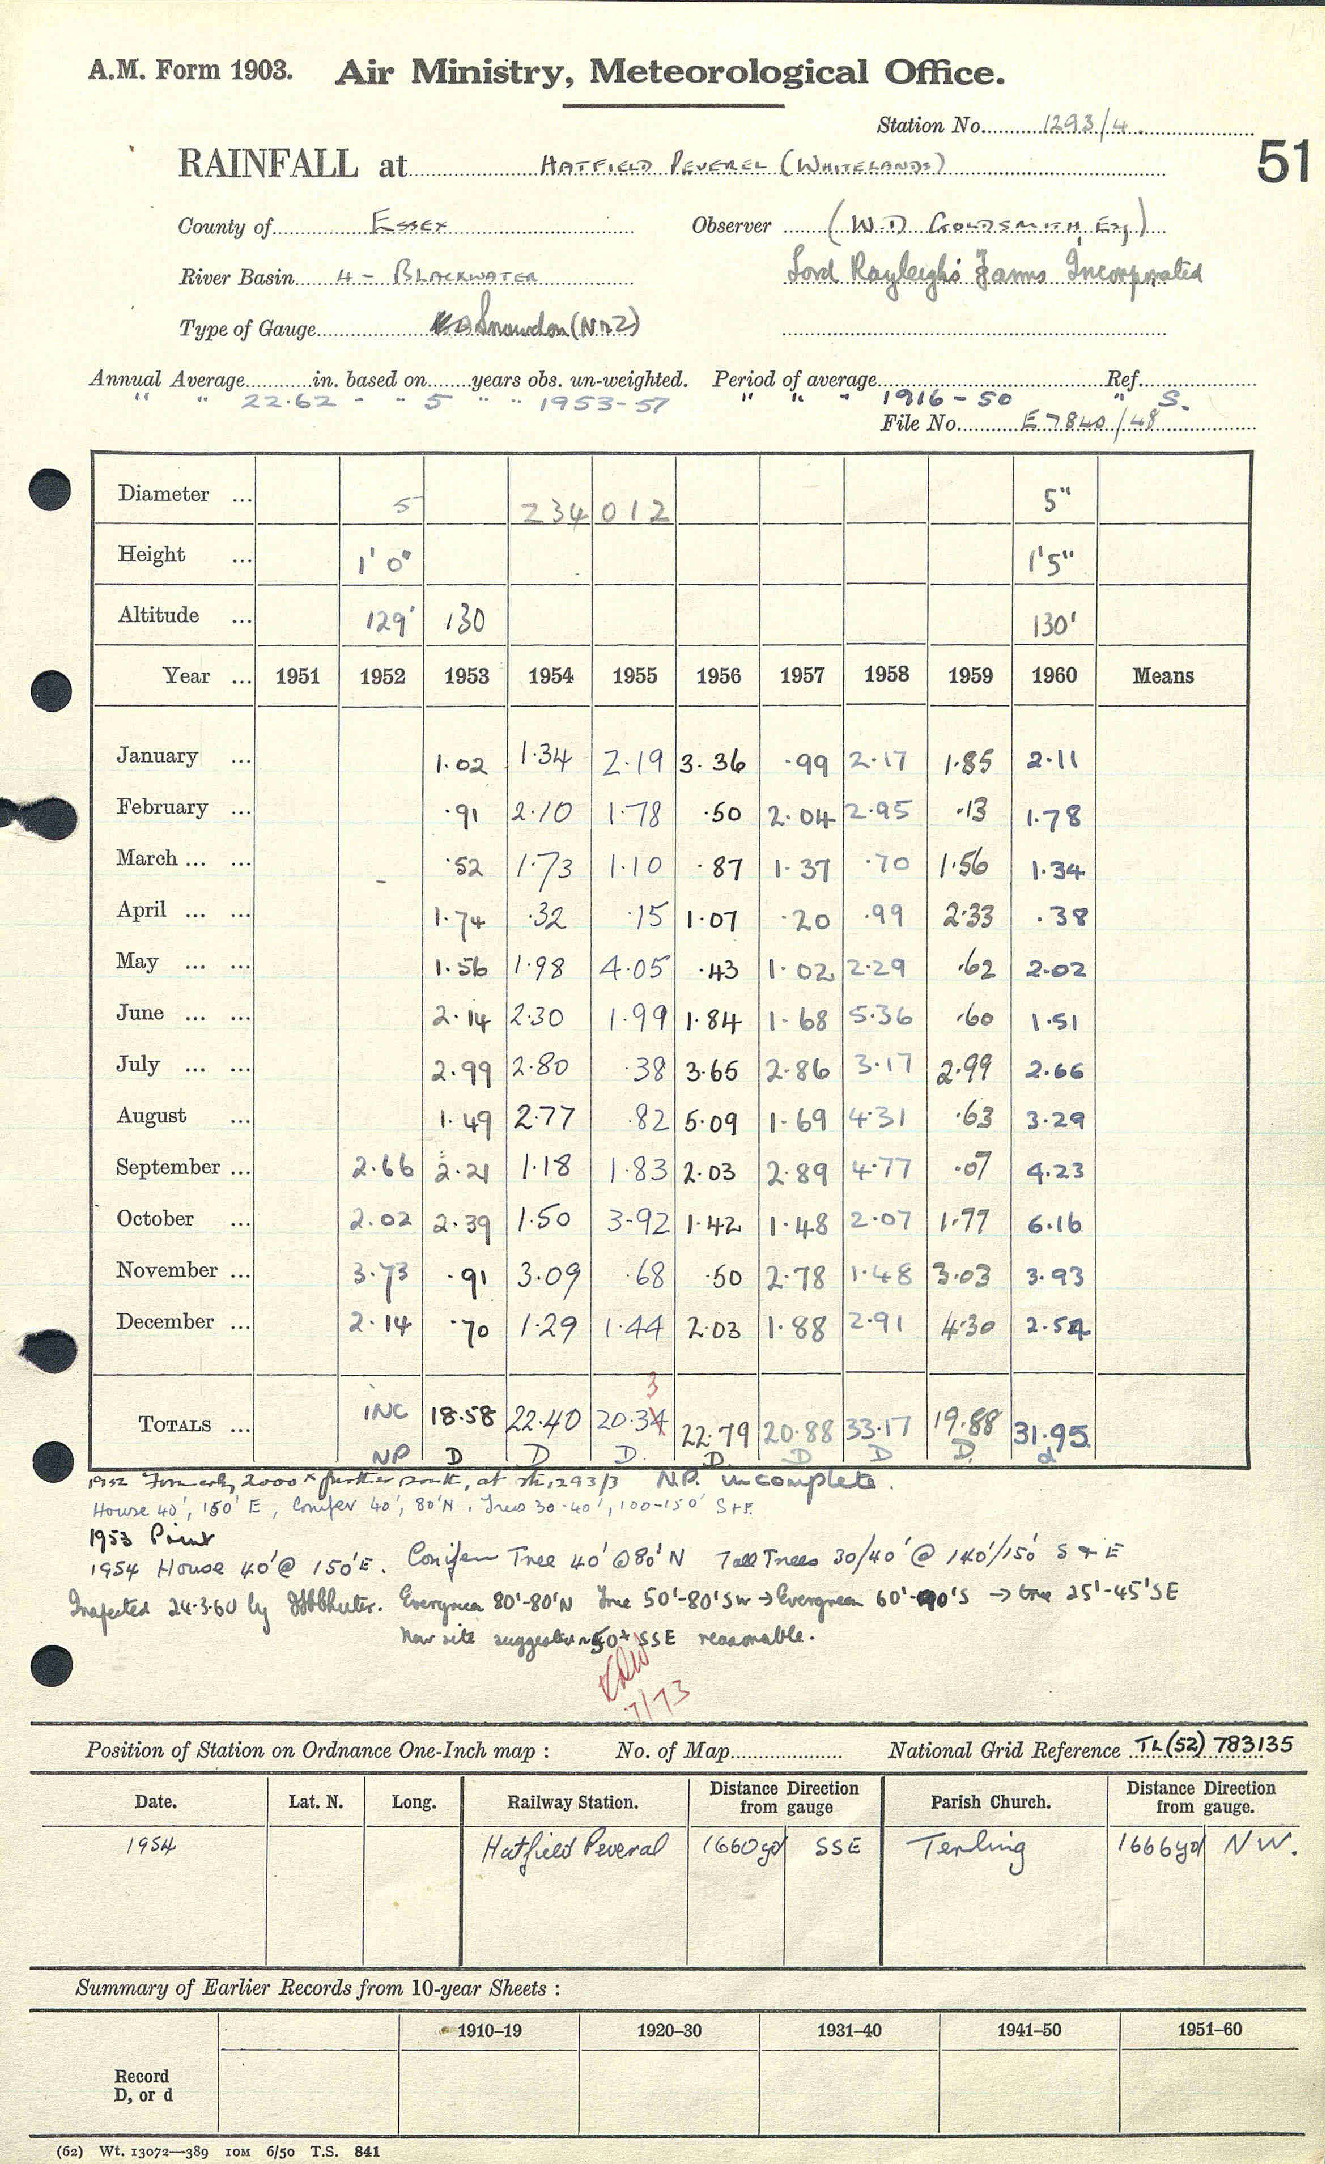 A.M. Form 1903. Air Ministry, Meteorological Office.
Station No. 1293/4.
51
RAINFALL at HATFIELD PEVEREL (WHITELANDS)
County of Essex Observer (W.D GOLDSMITH, Esq)
River Basin 4 - BLACKWATER Lord Rayleigh's Farms Incorporated
Type of Gauge Snowdon (No2)
Annual Average in. based on years obs. un-weighted. Period of average Ref.
" " 22.62 - " 5 " " 1953-57 " " " 1916-50 " S.
File No. E7840/48
Diameter ... 5 234 012 5"
Height ... 1' 0" 1'5"
Altitude ... 129' 130 130'
Year ... 1951 1952 1953 1954 1955 1956 1957 1958 1959 1960 Means
January ... 1.02 1.34 2.19 3.36 .99 2.17 1.85 2.11
February ... .91 2.10 1.78 .50 2.04 2.95 .13 1.78
March ... ... - .52 1.73 1.10 .87 1.37 .70 1.56 1.34
April ... ... 1.74 .32 .15 1.07 .20 .99 2.33 .38
May ... ... 1.56 1.98 4.05 .43 1.02 2.29 .62 2.02
June ... ... 2.14 2.30 1.99 1.84 1.68 5.36 .60 1.51
July ... ... 2.99 2.80 .38 3.65 2.86 3.17 2.99 2.66
August ... 1.49 2.77 .82 5.09 1.69 4.31 .63 3.29
September ... 2.66 2.21 1.18 1.83 2.03 2.89 4.77 .07 4.23
October ... 2.02 2.39 1.50 3.92 1.42 1.48 2.07 1.77 6.16
November ... 3.73 .91 3.09 .68 .50 2.78 1.48 3.03 3.93
December ... 2.14 .70 1.29 1.44 2.03 1.88 2.91 4.30 2.54
3
TOTALS ... INC 18.58 22.40 20.34 22.79 20.88 33.17 19.88 31.95
NP D D D. D D D D. d
1952 Formerly 2000x further south, at stn, 1293/3 N.P. incomplete.
House 40', 150' E, Conifer 40', 80'N. Trees 30-40', 100-150' S+E
1953 Print
1954 House 40' @ 150'E. Conifer Tree 40' @ 80' N Tall Trees 30/40' @ 140'/150' S & E
Inspected 24.3.60 by Evergreen 80'-80'N Tree 50'-80'SW → Evergreen 60'-90'S → tree 25'-45'SE
New site suggestion 50x SSE reasonable.
7/73
Position of Station on Ordnance One-Inch map : No. of Map National Grid Reference TL(52) 783135
Date. Lat. N. Long. Railway Station. Distance Direction from gauge Parish Church. Distance Direction from gauge.
1954 Hatfield Peveral 1660yd SSE Terling 1666yd NW.
Summary of Earlier Records from 10-year Sheets :
1910–19 1920–30 1931–40 1941–50 1951–60
Record
D, or d
(62) Wt. 13072—389 10M 6/50 T.S. 841